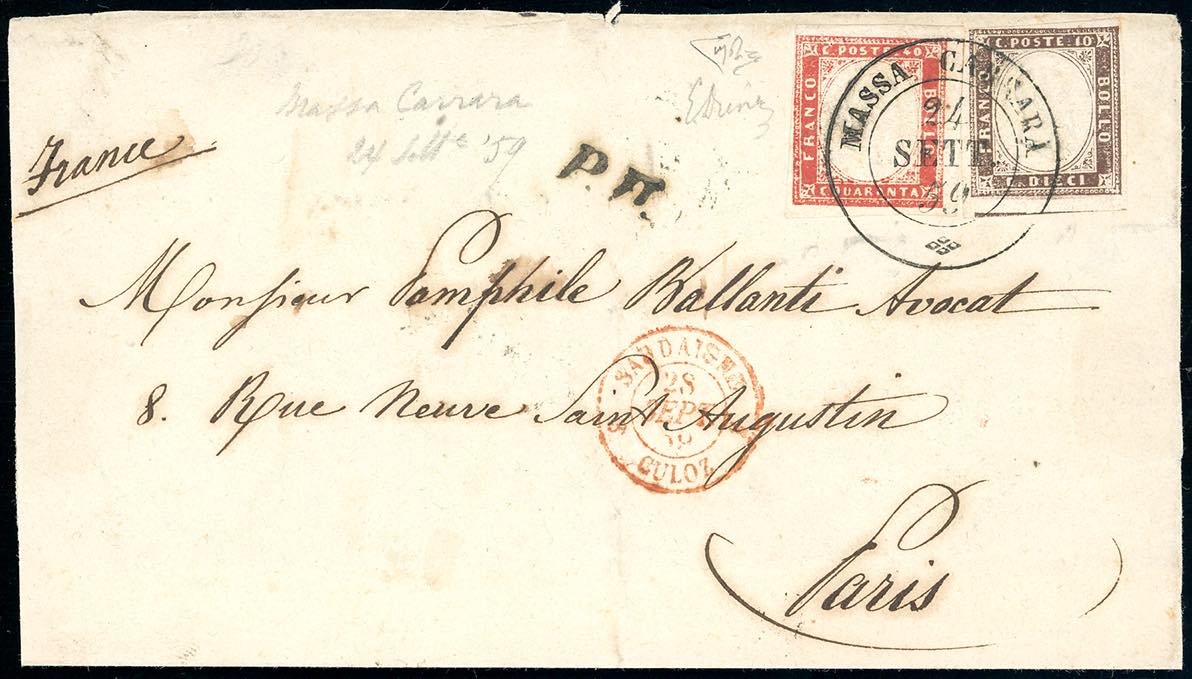 C. POSTE. 40
FRANCO
BOLLO
C. QUARANTA
C. POSTE. 10
FRANCO
BOLLO
C. DIECI
MASSA CARRARA
24
SETT.
59
Massa Carrara
24 Sett.e '59
EDiena
France
P.D.
Monsieur Pamphile Ballanti Avocat
8. Rue Neuve Saint Augustin
SARDAIGNE
28
SEPT.
59
CULOZ
Paris